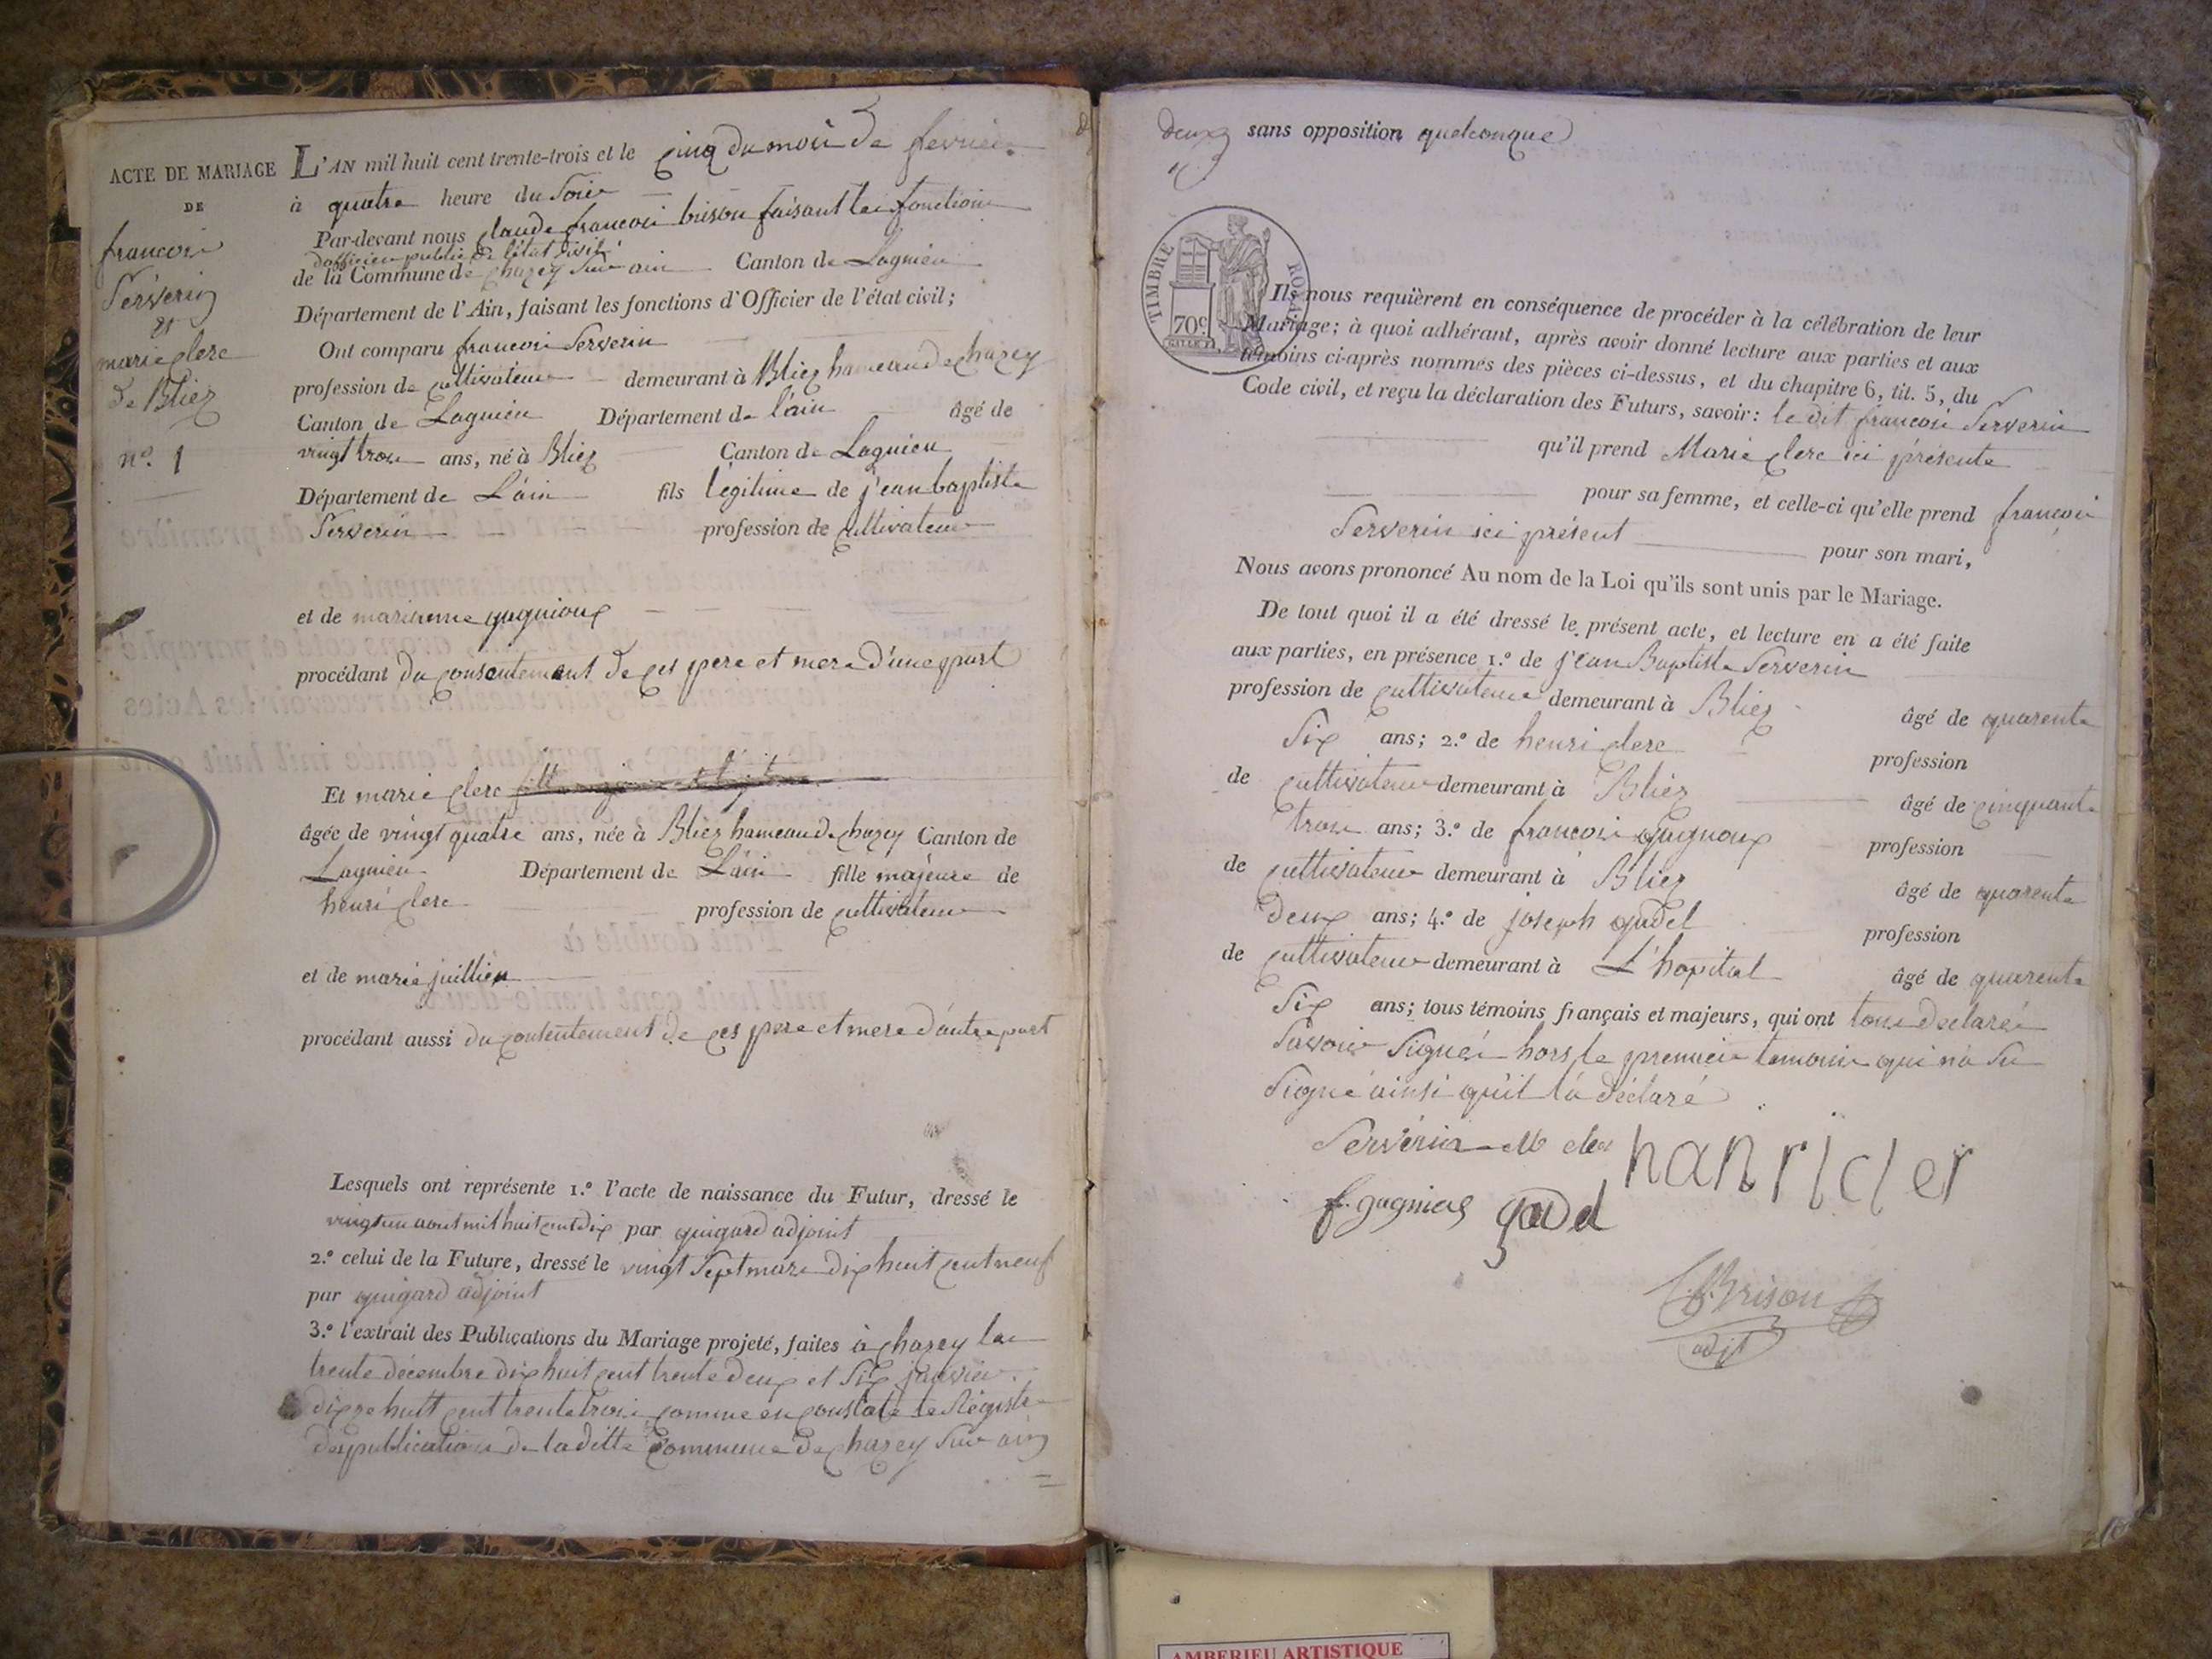 ACTE DE MARIAGE
DE
francois
Serverin
et
marie clerc
de Bliez
n.° 1
L'AN mil huit cent trente-trois et le cinq du mois de fevrier
à quatre heure du Soir
Par-devant nous claude francois brison faisant les fonctions
d'officier public de l'état civil
de la Commune de chazey Sur ain Canton de Lagnieu
Département de l'Ain, faisant les fonctions d'Officier de l'état civil;
Ont comparu francois Serverin
profession de cultivateur demeurant à Bliez hameau de chazey
Canton de Lagnieu Département de l'ain âgé de
vingt trois ans, né à Bliez Canton de Lagnieu
Département de L'ain fils légitime de jean baptiste
Serverin profession de cultivateur
et de marianne guguioux
procédant du consentement de ces pere et mere d'une part
Et marie clerc
âgée de vingt quatre ans, née à Bliez hameau de chazey Canton de
Lagnieu Département de L'ain fille majeure de
henri clerc profession de cultivateur
et de marie juillien
procédant aussi du consentement de ces pere et mere d'autre part
Lesquels ont représente 1.° l'acte de naissance du Futur, dressé le
vingt un aout mil huit cent dix par guigard adjoint
2.° celui de la Future, dressé le vingt Sept mars dix huit cent neuf
par guigard adjoint
3.° l'extrait des Publications du Mariage projeté, faites à chazey les
trente décembre dix huit cent trente deux et Six janvier
dixe huit cent trente trois comme en constate le Régistre
des publications de la ditte Commune de chazey Sur ain
deux sans opposition quelconque
TIMBRE ROYAL
70c
Ils nous requièrent en conséquence de procéder à la célébration de leur
Mariage; à quoi adhérant, après avoir donné lecture aux parties et aux
témoins ci-après nommés des pièces ci-dessus, et du chapitre 6, tit. 5, du
Code civil, et reçu la déclaration des Futurs, savoir: le dit francois Serverin
qu'il prend Marie clerc ici présente
pour sa femme, et celle-ci qu'elle prend françois
Serverin ici présent pour son mari,
Nous avons prononcé Au nom de la Loi qu'ils sont unis par le Mariage.
De tout quoi il a été dressé le présent acte, et lecture en a été faite
aux parties, en présence 1.° de jean Baptiste Serverin
profession de cultivateur demeurant à Bliez âgé de quarente
Six ans; 2.° de henri clerc profession
de cultivateur demeurant à Bliez âgé de cinquante
trois ans; 3.° de francois guignoux profession
de cultivateur demeurant à Bliez âgé de quarente
deux ans; 4.° de joseph gadel profession
de cultivateur demeurant à L'hopital âgé de quarente
Six ans; tous témoins français et majeurs, qui ont tous declarés
Savoir Signés hors le premier temoin qui n'a Su
Signé ainsi qu'il l'a déclaré
Serverin M cler hanricler
f. gagniere gadel
C.f. Brison
adjt
AMBERIEU ARTISTIQUE